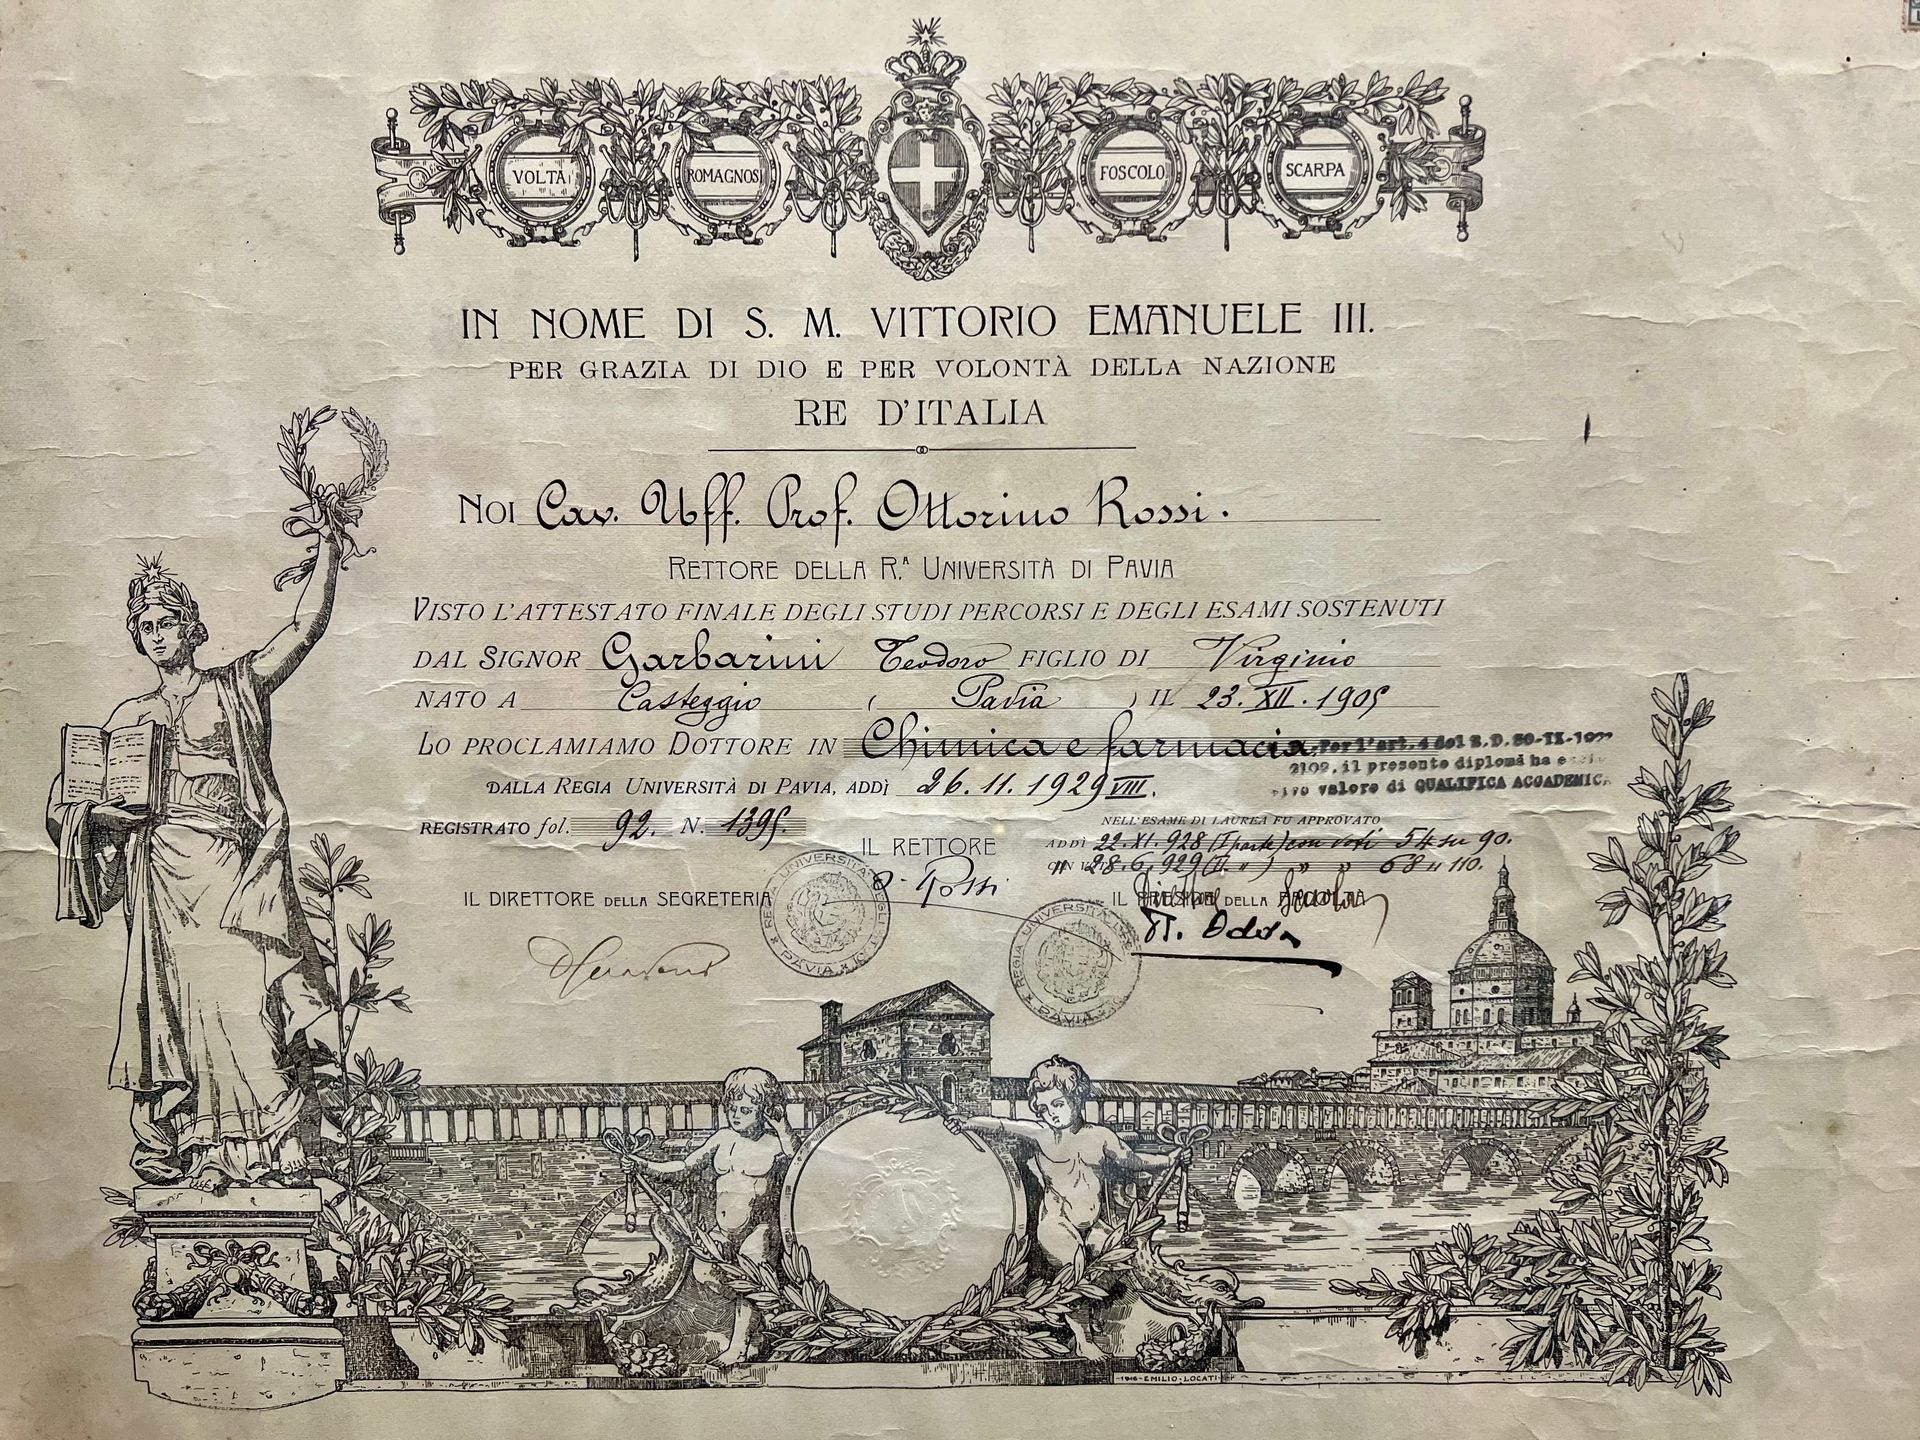 VOLTA ROMAGNOSI FOSCOLO SCARPA
IN NOME DI S. M. VITTORIO EMANUELE III.
PER GRAZIA DI DIO E PER VOLONTÀ DELLA NAZIONE
RE D'ITALIA
NOI Cav. Uff. Prof. Ottorino Rossi.
RETTORE DELLA R.A UNIVERSITÀ DI PAVIA
VISTO L'ATTESTATO FINALE DEGLI STUDI PERCORSI E DEGLI ESAMI SOSTENUTI
DAL SIGNOR Garbarini Teodoro FIGLIO DI Virginio
NATO A Casteggio ( Pavia ) IL 23. XII. 1905
LO PROCLAMIAMO DOTTORE IN Chimica e farmacia
Per l'art. 4 del R.D. 30-IX-19
2102, il presente diploma ha
valore di QUALIFICA ACCADEMIC
DALLA REGIA UNIVERSITÀ DI PAVIA, ADDÌ 26. 11. 1929 VIII.
REGISTRATO fol. 92. N. 1395.
NELL'ESAME DI LAUREA FU APPROVATO
ADDÌ 22. XI. 928 (I parte) con voti 54 su 90.
28. 6. 929 (II. " ) " " 68 " 110.
IL RETTORE
O. Rossi
IL DIRETTORE DELLA SEGRETERIA
IL DELLA
REGIA UNIVERSITÀ DEGLI
PAVIA
REGIA UNIVERSITÀ
PAVIA
1916 - EMILIO - LOCATI